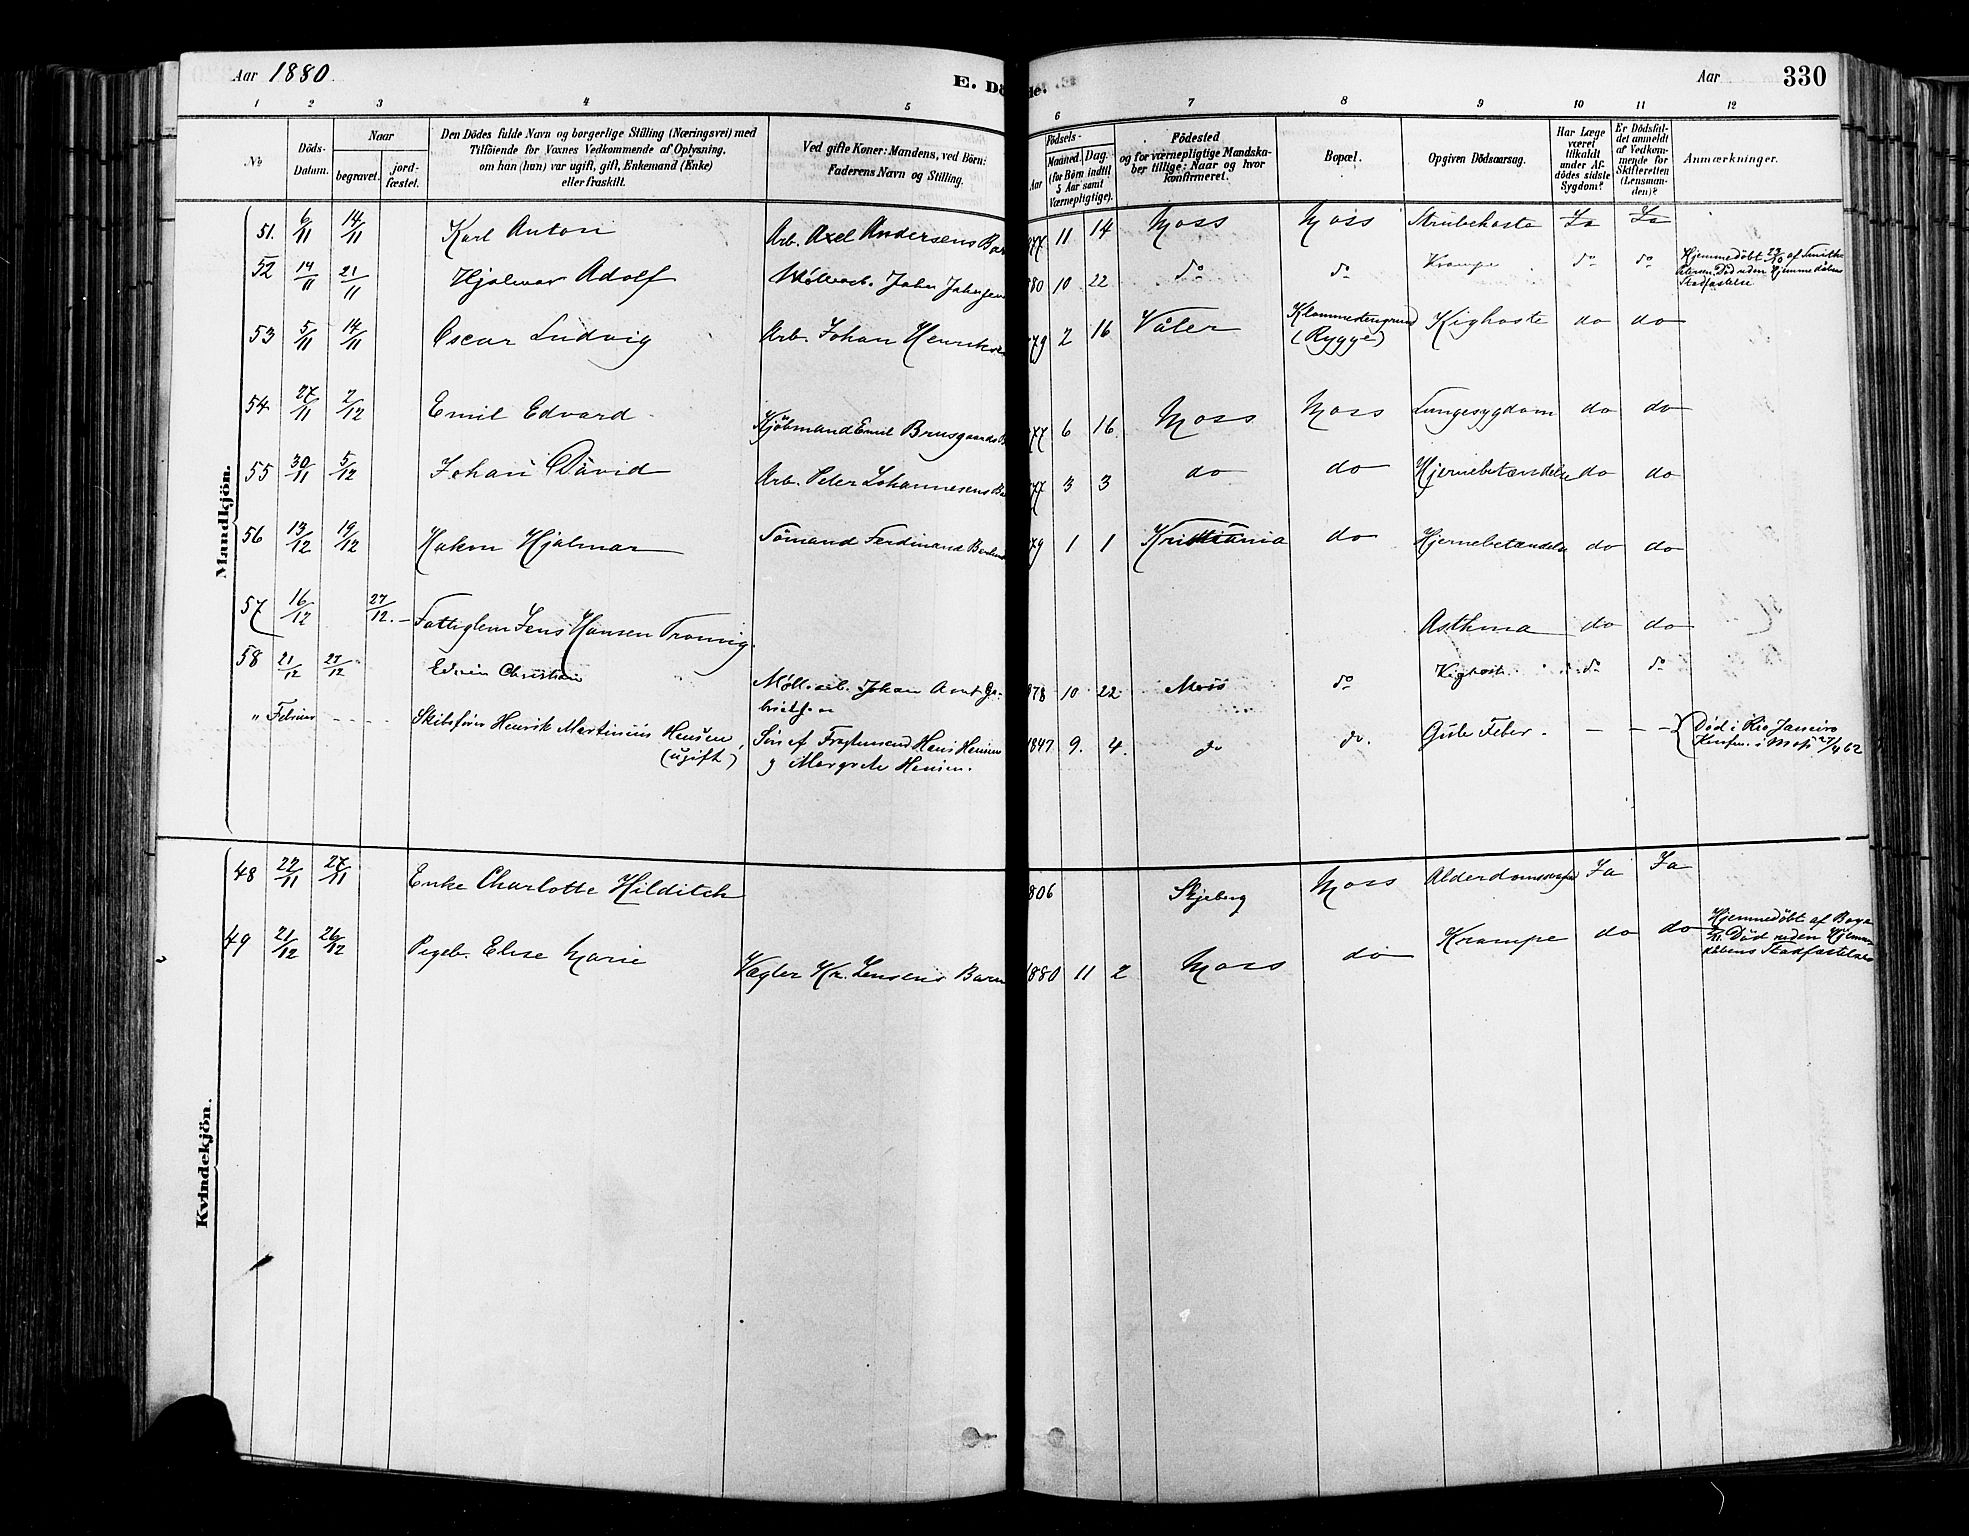 Aar 1880
E. Dö
de.
Aar
330
1 2 3 4 5 6 7 8 9 10 11 12
No
Döds-
Datum.
Naar
begravet.
jord-
fæstet.
Den Dödes fulde Navn og borgerlige Stilling (Næringsvei) med
Tilföiende for Voxnes Vedkommende af Oplysning,
om han (hun) var ugift, gift, Enkemand (Enke)
eller fraskilt.
Ved gifte Koner: Mandens, ved Börn:
Faderens Navn og Stilling.
Födsels-
Aar
Maaned.
Dag.
(for Börn indtil
5 Aar samt
Værnepligtige).
Födested
og for værnepligtige Mandska-
ber tillige: Naar og hvor
konfirmeret.
Bopæl.
Opgiven Dödsaarsag.
Har Læge
været
tilkaldt
under Af-
dödes sidste
Sygdom?
Er Dödsfal-
det anmeldt
af Vedkom-
mende for
Skifteretten
(Lensman-
den)?
Anmærkninger.
Mandkjön.
51. 6/11 14/11 Karl Anton Arb. Axel Andersens Bar 877 11 14 Moss Moss Strubehoste Ja Ja
52 14/11 21/11 Hjalmar Adolf Möllearb. Johan Johansen 880 10 22 do do Krampe do do Hjemmedöbt 23/10 af Smith
Död uden Hjemmedaabens
Stadfæstelse
53 5/11 14/11 Oscar Ludvig Arb. Johan Henriksen 879 2 16 Våler Klommestengrund
(Rygge) Kighoste do do
54 27/11 2/12 Emil Edvard Kjöbmand Emil Brusgaards B 877 6 16 Moss Moss Lungesygdom do do
55 30/11 5/12 Johan David Arb. Peter Johannesens Ba 877 3 3 do do Hjernebetændelse do do
56 13/12 19/12 Hakon Hjalmar Sömand Ferdinand 879 1 1 Kristiania do Hjernebetændelse do do
57 16/12 27/12. Fattiglem Jens Hansen Tronvig. Asthma do do
58 21/12 27/12 Edvin Christian Möll. arb. Johan Arnt Ga-
brielsen 1878 10 22 Moss do Kighoste do do
" Februar - - - - Skibsförer Henrik Martinius Hansen,
(ugift) Sön af Fragtemand Hans Hansen
og Margrete Hansen. 1847 9. 4. do do. Gule Feber. - - - Död i Rio Janeiro
Konfm. i Moss 27/4 62
Kvindekjön.
48 22/11 27/11 Enke Charlotte Hilditch 1806 Skjeberg Moss Alderdomssvaghed Ja Ja
49 21/12 26/12 Pigeb. Elise Marie Vægter Kr. Jensens Barn 1880 11 2 Moss do Krampe do do Hjemmedöbt af
Död uden Hjemme-
dåbens Stadfæstelse